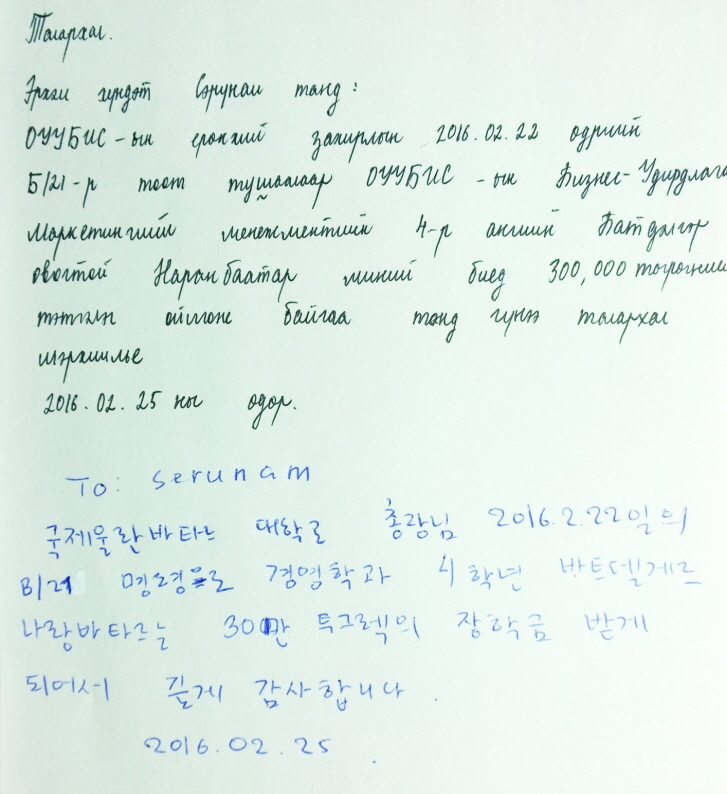 Талархал.
Эрхэм хүндэт Сэрунам танд:
ОУУБИС-ын ерөнхий захирлын 2016.02.22 өдрийн
Б/21-р тоот тушаалаар ОУУБИС-ын Бизнес-Удирдлага
Маркетингийн менежментийн 4-р ангийн Батдэлгэр
овогтой Наранбаатар миний биед 300,000 төгрөгийн
тэтгэлэг олгож байгаа танд гүнээ талархал
илэрхийлье
2016.02.25 ны өдөр.
To: serunam
국제울란바타르 대학교 총장님 2016.2.22일의
B/21 명령으로 경영학과 4학년 바트델게르
나랑바타르는 300만 투그렉의 장학금 받게
되어서 깊게 감사합니다.
2016.02.25